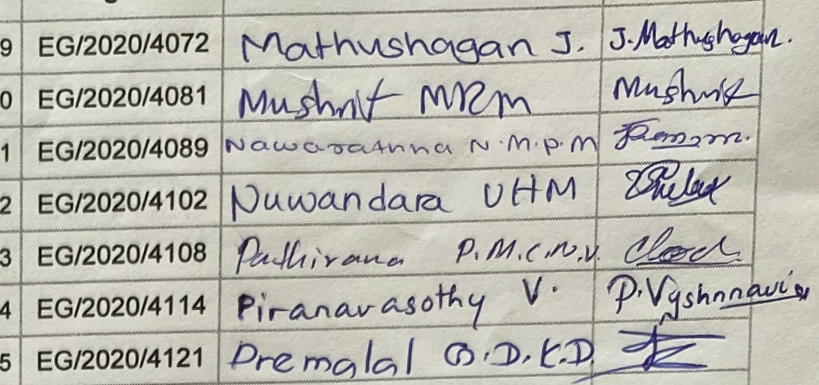 9 EG/2020/4072 Mathushagan J. J.Mathushagan.
0 EG/2020/4081 Mushrif MRM Mushrif
1 EG/2020/4089 Nawarathna N.M.P.M
2 EG/2020/4102 Nuwandara UHM
3 EG/2020/4108 Pathirana P.M.C.N.V.
4 EG/2020/4114 Piranavasothy V. P.Vyshnnavi
5 EG/2020/4121 Premalal B.D.K.D.